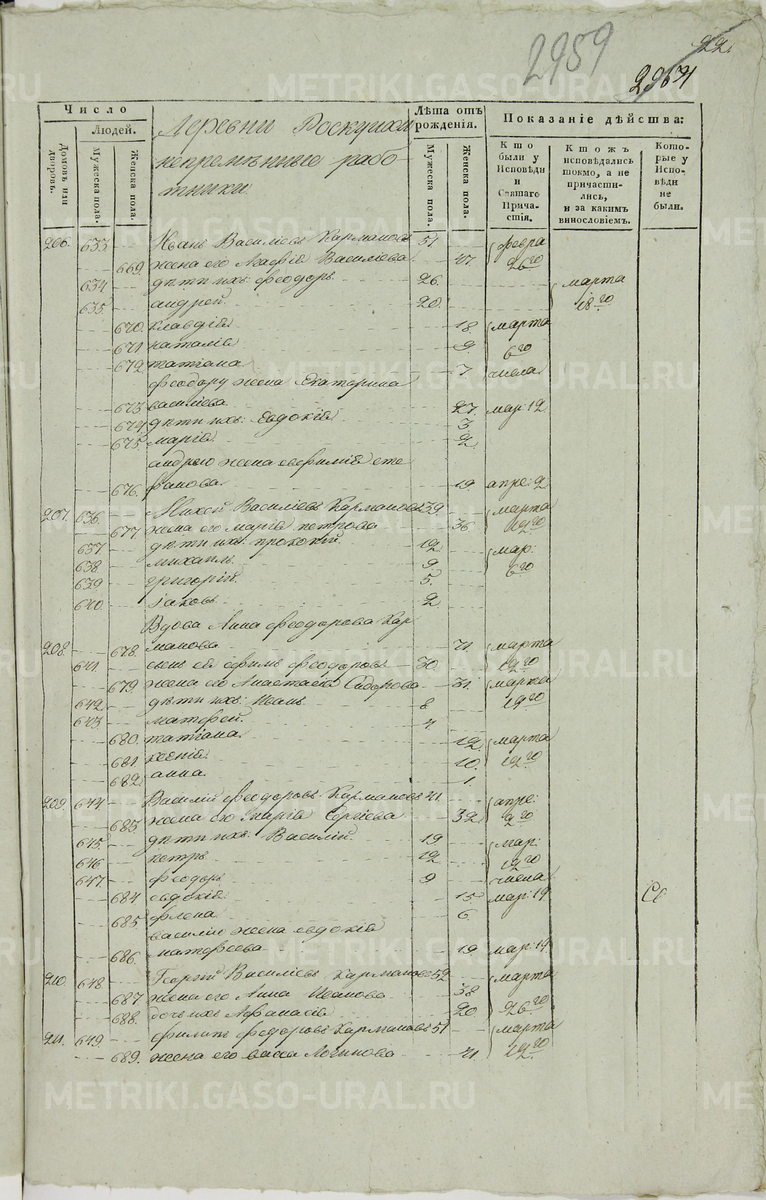 2959
22.
Число
Людей.
Домовъ или дворовъ.
Мужеска пола.
Женска пола.
Деревни Роскуихи
непремѣнные рабо
тники
Лѣта отъ рожденія.
Мужеска пола.
Женска пола.
Показаніе дѣйства:
Кто были у Исповѣди и Святаго Причастія.
Кто жъ исповѣдались токмо, а не причастились, и за какимъ винословіемъ.
Которые у Исповѣди не были.
206. 633 Иванъ Василіевъ Кармановъ 51 февра
669 жена его Агафія Василіева 47 26го
634 дѣти ихъ: феодоръ 26. марта
635. андрей 20. 18го
670. клавдія 18. марта
671 наталія 9 6го
672 татіана 7 числа
феодору жена Екатерина
673 василіева 27. мар: 12
674 дѣти ихъ: Евдокія 3
675 марія 2
андрею жена евфимія сте
676. фанова 19. апре: 2
207. 636. Михей Василіевъ Кармановъ 39 марта
677 жена его марія петрова 36 12го
637 дѣти ихъ: прокопій 12 мар:
638 михаилъ 9 6го
639 григорій 5.
640. Іаковъ 2
Вдова Анна феодорова Кар
208. 678. манова 71. марта
641 сынъ ея ефимъ феодоровъ 30 12го
679. жена его Анастасія Сидорова 31. марта
642. дѣти ихъ: Иванъ 8 19го
643. матфей 4
680. татіана 12 марта
681 ксенія 10. 12го
682. анна 1.
209. 644 Василій феодоровъ Кармановъ 41 апре:
683. жена его Сергіева 32 2го
645. дѣти ихъ: Василій 19 мар:
646 петръ 12 12го
647 феодоръ 9 числа
684 евдокія 15 мар: 19
685 6
василію жена евдокія
686. матфеева 19. мар: 19
210. 648 Георгій Василіевъ Кармановъ 52 марта
687 жена его Анна Иванова 38
688. дочь ихъ Афанасія 20 26го
211. 649 филипъ феодоровъ Кармановъ 51 марта
689. жена его васса Логинова 41. 12го
METRIKI.GASO-URAL.RU